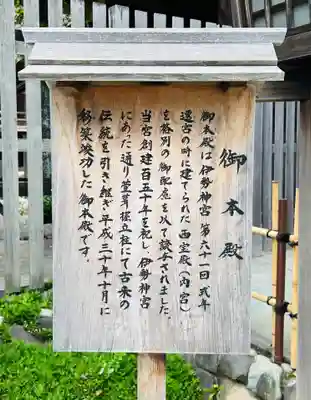 御本殿
御本殿は伊勢神宮 第六十一回 式年
遷宮の時に建てられた 西宝殿(内宮)
を格別の御配慮を以て譲与されました。
当宮創建百五十年を祝し、伊勢神宮
にあった通り萱葺掘立柱にて古来の
伝統を引き継ぎ 平成三十年十月に
移築竣功した 御本殿です。